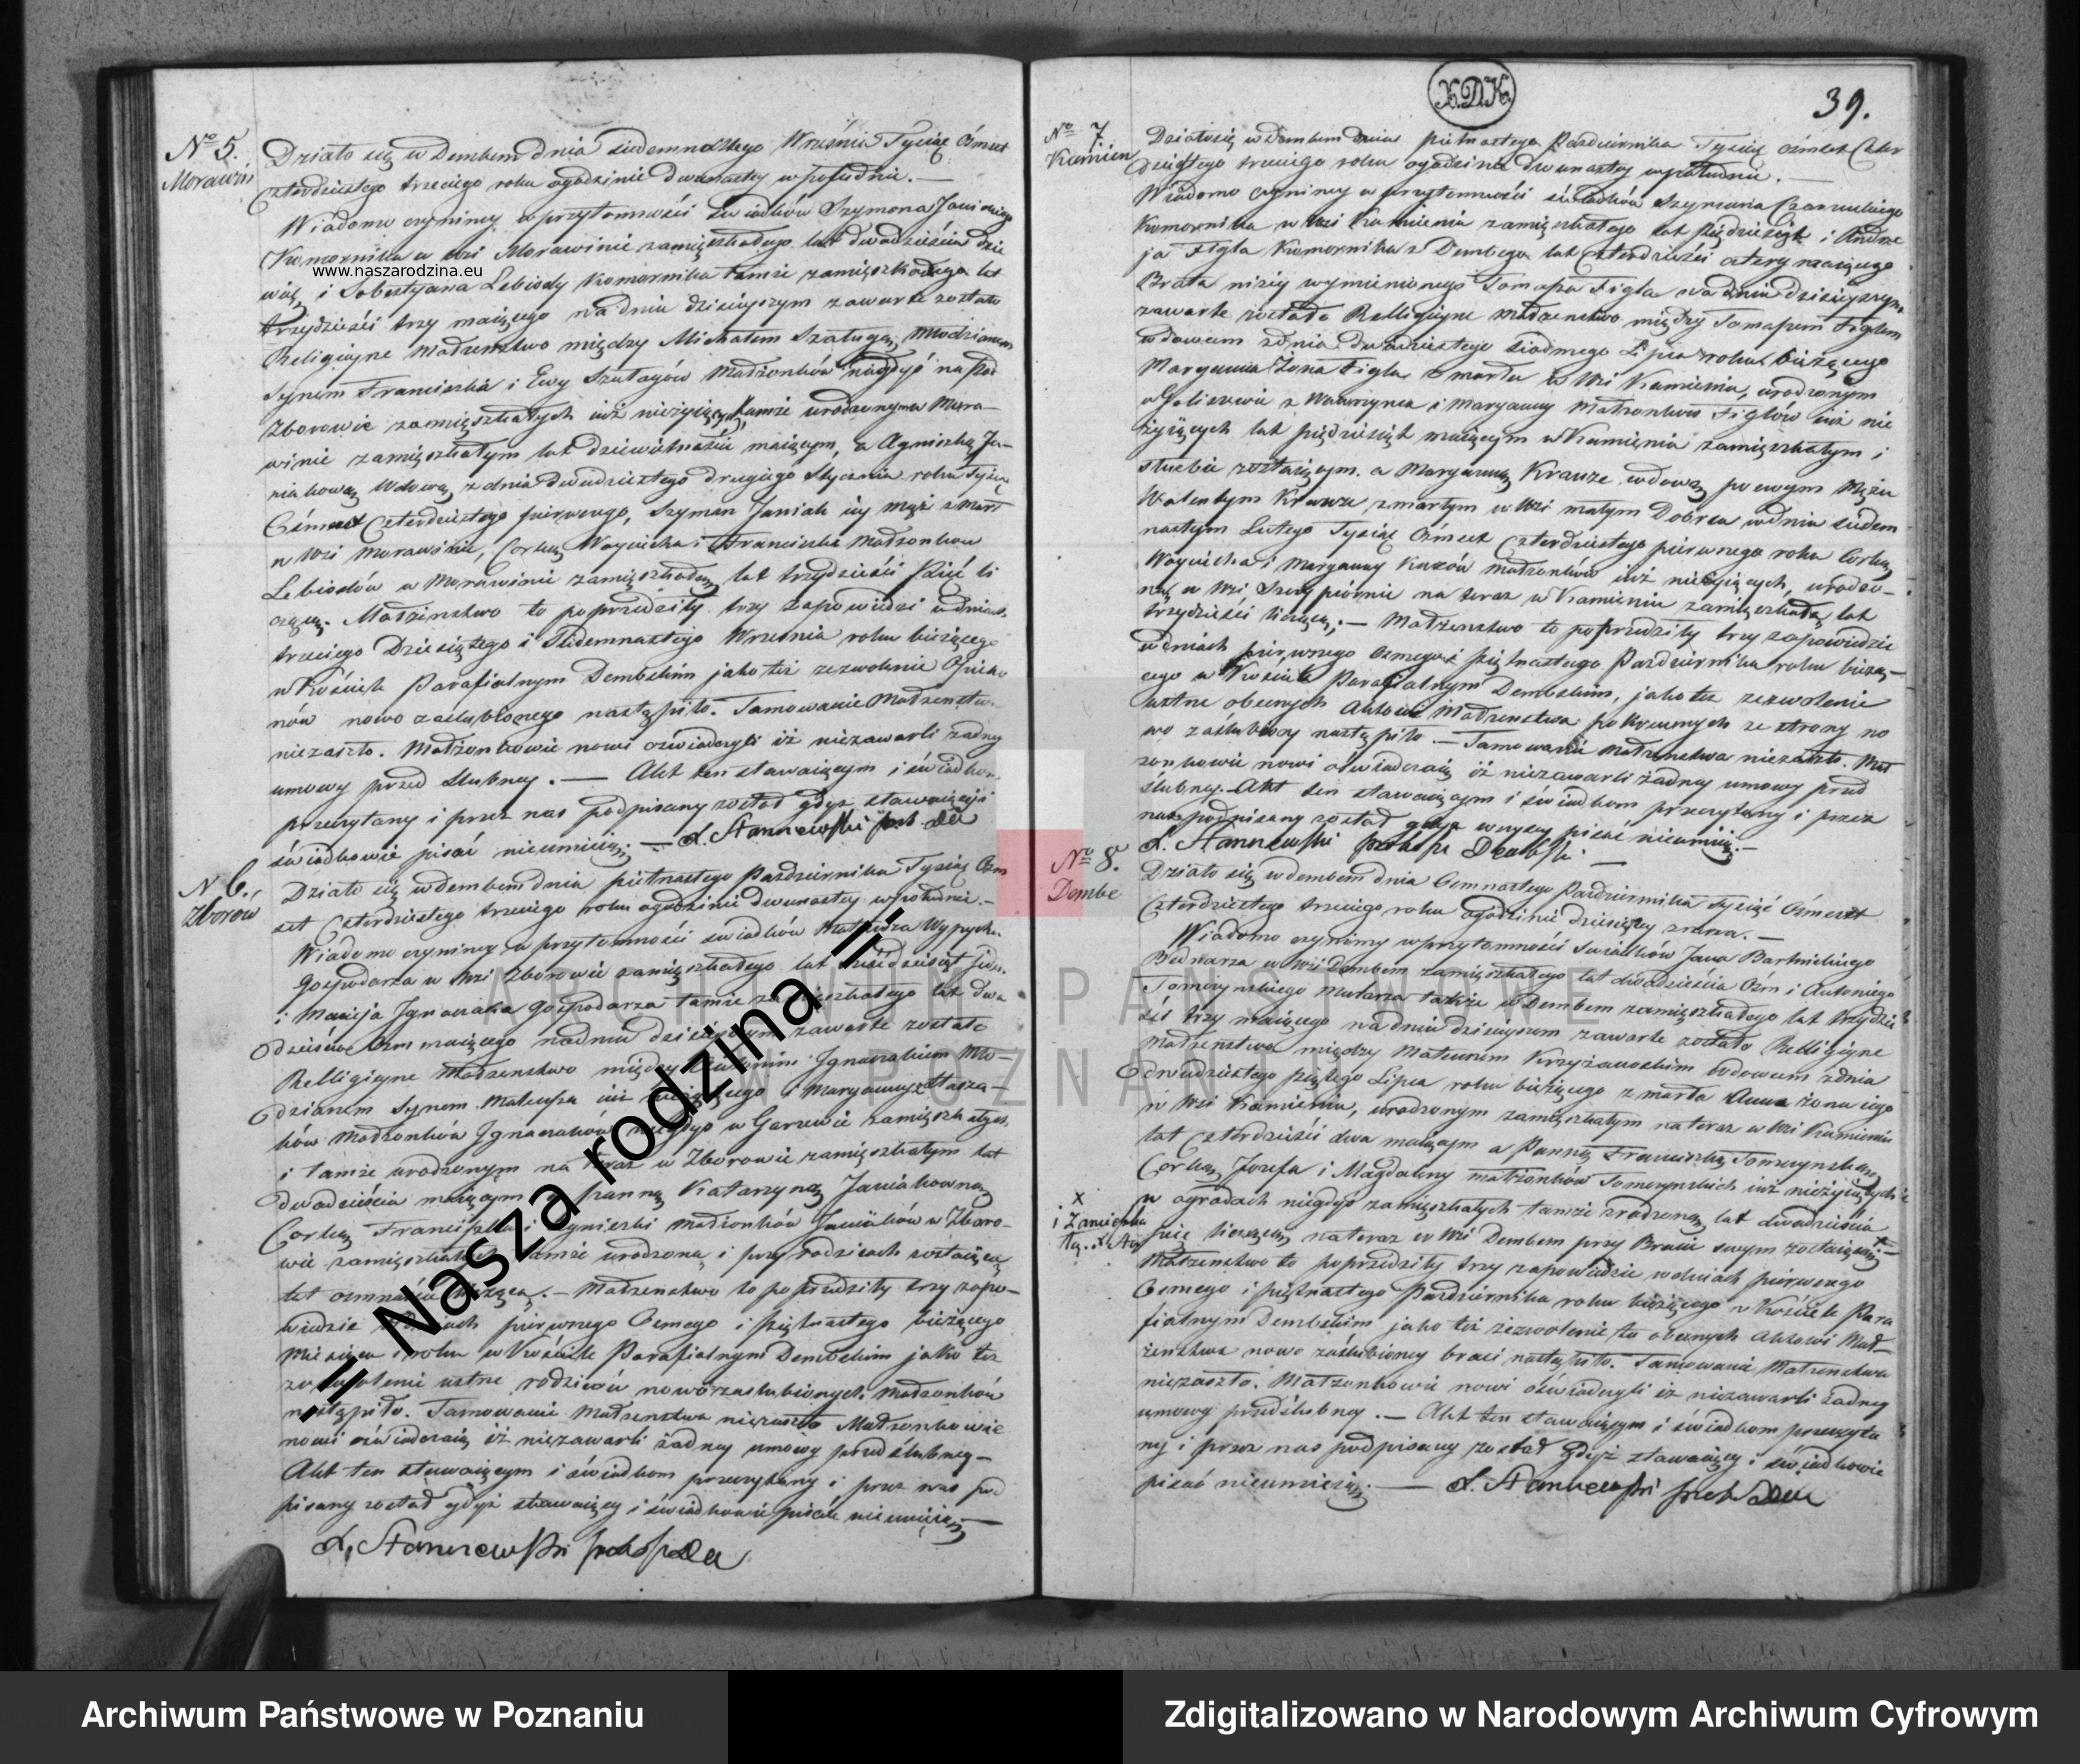 X.D.K.
39.
No 5.
Morawin
Działo się w Dembem dnia siedemnastego Września Tysiąc Ośmset
Czterdziestego trzeciego roku o godzinie dwunastej w południe. —
Wiadomo czynimy w przytomności świadków Szymona
Komornika w wsi Morawinie zamięszkałego lat dwadzieścia dzie
www.naszarodzina.eu
więć, i Sobestyana Lebiody Komornika tamże zamięszkałego lat
trzydzieści trzy maiącego na dniu dzisieyszym zawarte zostało
Religijne Małżeństwo między Michałem Szaługą, Młodzianem
Synem Franciszka i Ewy Szałagów Małżonków niegdyś na Pod
Zborowie zamięszkałych iuż nieżyiących, tamże urodzonym w Mora—
winie zamięszkałym lat dziewiętnaście maiącym, a Agnieszką Ja—
niakową Wdową, z dnia dwudziestego drugiego Stycznia roku Tysiąc
Ośmset Czterdziestego pierwszego, Szymon Janiak iey mąż zmarł
w wsi Morawinie, Córką Woyciecha i Franciszki Małżonków
Lebiodów w Morawinie zamięszkałą, lat trzydzieści pięć li
czącą. Małżeństwo to poprzedziły trzy zapowiedzi w dniach
trzeciego Dziesiątego i Siedemnastego Września roku bieżącego
w Kościele Parafialnym Dembskim jako też zezwolenie Opieku
nów nowo zaślubionego nastąpiło. Tamowanie Małżeństwa
niezaszło. Małżonkowie nowi oświadczyli iż niezawarli żadney
umowy przed ślubney. — Akt ten stawaiącym i świadkom
przeczytany i przez nas podpisany został gdyż stawaiący i
świadkowie pisać nieumieią. —
N 6.
Zborów
Działo się w Dembem dnia piętnastego Października Tysiąc Ośm
set Czterdziestego trzeciego roku o godzinie dwunastey w południe. —
Wiadomo czynimy w przytomności świadków
Gospodarza w wsi Zborowie zamięszkałego lat
i Macieja Ignaczaka Gospodarza tamże zamięszkałego lat dwa
dzieścia ośm maiącego na dniu dzisieyszym zawarte zostało
Relligijne Małżeństwo między Ignaczakiem Mło—
dzianem Synem Mateusza iuż nieżyiącego i Maryanny
ków Małżonków Ignaczaków niegdyś w Garzewie zamięszkałych
i tamże urodzonym na teraz w Zborowie zamięszkałym lat
dwadzieścia maiącym a Panną Katarzyną Janiakowną
Córką Franciszka i Agnieszki Małżonków Janiaków w Zboro—
wie zamięszkałych tamże urodzoną i przy rodzicach zostaiącą
lat ośmnaście liczącą. — Małżeństwo to poprzedziły trzy zapo—
wiedzie w dniach pierwszego Osmego i piętnastego bieżącego
Miesiąca i roku w Kościele Parafialnym Dembskim jako też
zezwolenie ustne rodziców nowozaślubionych Małżonków
nastąpiło. Tamowanie Małżeństwa niezaszło Małżonkowie
nowi oświadczaią iż niezawarli żadney umowy przed ślubney —
Akt ten stawaiącym i świadkom przeczytany i przez nas pod
pisany został gdyż stawaiący i świadkowie pisać nieumieią. —
No 7.
Kamien
Działo się w Dembem dnia piętnastego Października Tysiąc Ośmset Czter
dziestego trzeciego roku o godzinie dwunastey w południe. —
Wiadomo czynimy w przytomności świadków Szymona Czarneckiego
Komornika w wsi Kamieniu zamięszkałego lat pięćdziesiąt i Andrze
ja Figla Komornika z Dembego lat Czterdzieści cztery maiącego
Brata niżey wymienionego Tomasza Figla na dniu dzisieyszym
zawarte zostało Relligijne Małżeństwo między Tomaszem Figlem
wdowcem z dnia dwudziestego siodmego Lipca roku bieżącego
Maryanna Żona Figla zmarła w wsi Kamieniu, urodzonym
w Goliszewie z Wawrzyńca i Maryanny Małżonków Figlów iuż nie
żyiących lat pięćdziesiąt maiącym w Kamieniu zamięszkałym i
służbie zostaiącym. a Maryanną Krauze wdową po swym Mężu
Walentym Krauze zmarłym w wsi małym Dobrcu w dniu siedem
nastym Lutego Tysiąc Ośmset Czterdziestego pierwszego roku Córką
Woyciecha i Maryanny Kuzów małżonków iuż nieżyiących, urodzo—
ną w wsi Szczypiornie na teraz w Kamieniu zamięszkałą, lat
trzydzieści liczącą. — Małżeństwo to poprzedziły trzy zapowiedzie
w dniach pierwszego Osmego i piętnastego Października roku bieżą—
cego w Kościele Parafialnym Dembskim, jako też zezwolenie
ustne obecnych Aktowi Małżeństwa pokrewnych ze strony no
wo zaślubioney nastąpiło. — Tamowanie Małżeństwa niezaszło. Mał
żonkowie nowi oświadczaią iż niezawarli żadney umowy przed
ślubney. Akt ten stawaiącym i świadkom przeczytany i przez
nas podpisany został gdyż wszyscy pisać nieumieią. —
No 8.
Dembe
Działo się w Dembem dnia Osmnastego Października Tysiąc Ośmset
Czterdziestego trzeciego roku o godzinie dziesiątey z rana. —
Wiadomo czynimy w przytomności świadków Jana Bartnickiego
Bednarza w wsi Dembem zamięszkałego lat dwadzieścia Ośm i Antoniego
Tomczynskiego Mularza także w Dembem zamięszkałego lat trzydzie
ści trzy maiącego na dniu dzisieyszym zawarte zostało Relligijne
Małżeństwo między Mateuszem Krzyżanoskim Wdowcem z dnia
dwudziestego piątego Lipca roku bieżącego zmarła Anna żona iego
w wsi Kamieniu, urodzonym zamięszkałym na teraz w wsi Kamieniu
lat Czterdzieści dwa maiącym a Panną Franciszką Tomczynską
Córką Jozefa i Magdaleny małżonków Tomczynskich iuż nieżyiących
w ogrodach niegdyś zamięszkałych tamże zrodzoną lat dwadzieścia
x
i Zamieszka
łą.
pięć liczącą na teraz w wsi Dembem przy Bracie swym zostaiącą x —
Małżeństwo to poprzedziły trzy zapowiedzie w dniach pierwszego
Osmego i piętnastego Października roku bieżącego w Kościele Para
fialnym Dembskim jako też zezwolenie tu obecnych Aktowi Mał—
żeństwa nowo zaślubioney braci nastąpiło. Tamowanie Małżeństwa
niezaszło. Małżonkowie nowi oświadczyli iż niezawarli żadney
umowy przedślubney. — Akt ten stawaiącym i świadkom przeczyta
ny i przez nas podpisany został gdyż stawaiący i świadkowie
pisać nieumieią. —
-= Nasza rodzina =-
ARCHIWUM PAŃSTWOWE
W POZNANIU
Archiwum Państwowe w Poznaniu
Zdigitalizowano w Narodowym Archiwum Cyfrowym